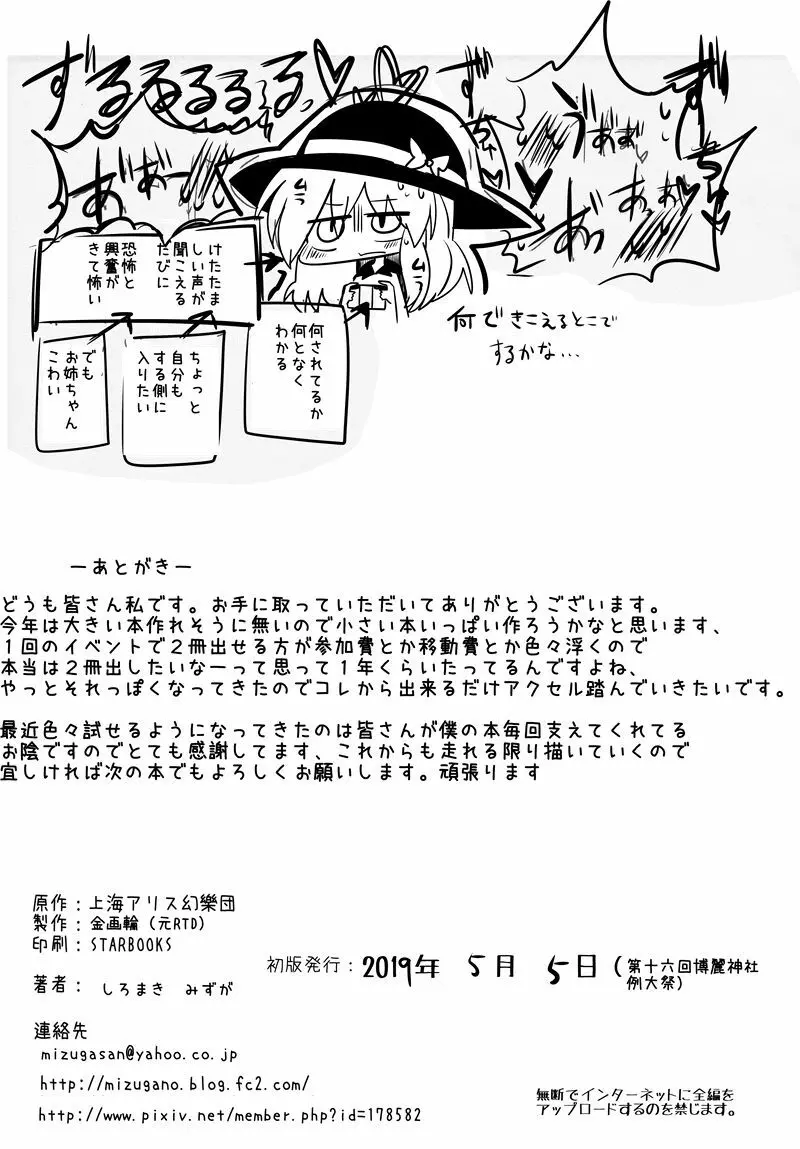 ずるるるるる、♡
ずちゅ
うあぁ
ずちゅ
あぁっ
あぁぁー
けたたま
しい声が
聞こえる
たびに
恐怖と
興奮が
きて怖い
何されてるか
何となく
わかる
ちょっと
自分も
する側に
入りたい
でも
お姉ちゃん
こわい
何できこえるとこで
するかな...
ーあとがきー
どうも皆さん私です。お手に取っていただいてありがとうございます。
今年は大きい本作れそうに無いので小さい本いっぱい作ろうかなと思います、
1回のイベントで2冊出せる方が参加費とか移動費とか色々浮くので
本当は2冊出したいなーって思って1年くらいたってるんですよね、
やっとそれっぽくなってきたのでコレから出来るだけアクセル踏んでいきたいです。
最近色々試せるようになってきたのは皆さんが僕の本毎回支えてくれてる
お陰ですのでとても感謝してます、これからも走れる限り描いていくので
宜しければ次の本でもよろしくお願いします。頑張ります
原作：上海アリス幻樂団
製作：金画輪（元RTD）
印刷：STARBOOKS
著者： しろまき みずが
初版発行：2019年 5月 5日（第十六回博麗神社
例大祭）
連絡先
mizugasan@yahoo.co.jp
http://mizugano.blog.fc2.com/
http://www.pixiv.net/member.php?id=178582
無断でインターネットに全編を
アップロードするのを禁じます。